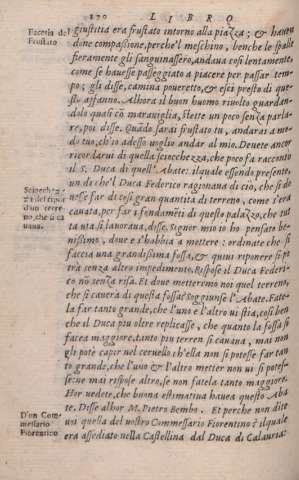 120 LIBRO
Facetia del
Frustato
giustitia era frustato intorno alla piazza; & hauen
done compassione, perche'l meschino, benche le spalle
fieramente gli sanguinassero, andaua cosi lentamente,
come se hauesse passeggiato a piacere per passar tem
po; gli disse, camina poueretto, & esci presto di que-
sto affanno. Alhora il buon huomo riuolto guardan-
dolo quasi cō merauiglia, stette un poco senza parla-
re, poi disse. Quādo sarai frustato tu, andarai a mo
do tuo, ch'io adesso uoglio andar al mio. Deuete ancor
ricordarui di quella sciocchezza, che poco fa racconto
il S. Duca di quell' Abate. ilquale essendo presente,
un dì che'l Duca Federico ragionaua di ciò, che si do
uesse far di così gran quantita di terreno, come s'era
cauata, per far i fondamēti di questo palazzo, che tut
ta uia si lauoraua, disse, Segnor mio io ho pensato be-
nissimo, doue e s'habbia a mettere: ordinate che si
faccia una grandissima fossa, & quiui riponere si po
trà senza altro impedimento. Rispose il Duca Federi-
co nō senza risa. Et doue metteremo noi quel terreno,
che si cauera di questa fossa? Soggiunse l'Abate. Fate-
la far tanto grande, che l'uno e l'altro ui stia. così ben
che il Duca piu uolte replicasse, che quanto la fossa si
facea maggiore, tanto piu terren si cauaua, mai non
gli potè capir nel ceruello ch'ella non si potesse far tan
to grande, che l'uno & l'altro metter non ui si potes-
se: ne mai rispose altro, se non fatela tanto maggiore.
Hor uedete, che buona estimatiua hauea questo Aba
te. Disse alhor M. Pietro Bembo. Et perche non dite
uoi quella del uostro Commessario Fiorentino è ilquale
era assediato nella Castellina dal Duca di Calauria.
D'un Com
messario
Fiorentico